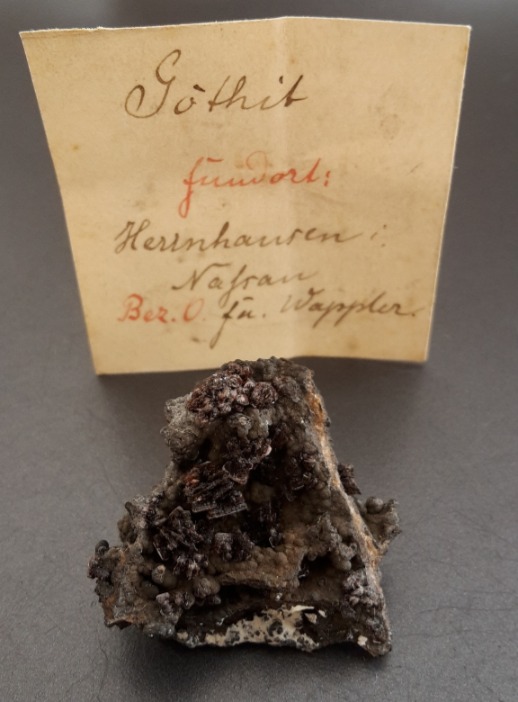 Göthit
fundort:
Herrnhausen i.
Nassau
Bez. O. fn. Wappler.